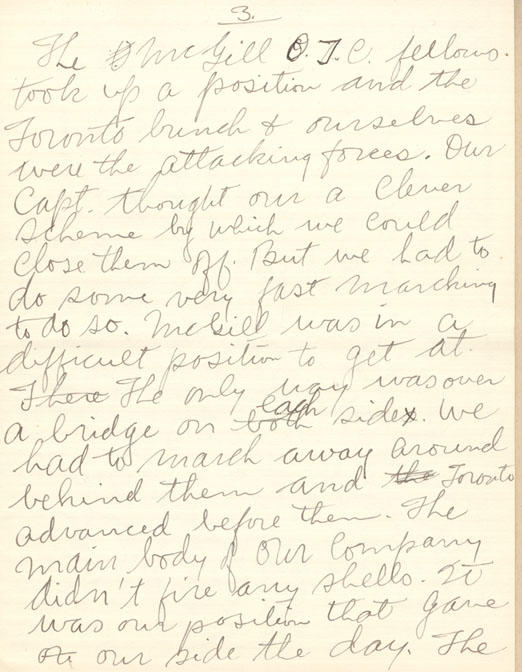 3.
The McGill O.T.C. fellows.
took up a position and the
Toronto bunch & ourselves
were the attacking forces. Our
Capt. thought our a clever
scheme by which we could
close them off. But we had to
do some very fast marching
to do so. McGill was in a
difficult position to get at.
There The only way was over
a bridge on both each sides. We
had to march away around
behind them and the Toronto
advanced before them. The
main body of our Company
didn't fire any shells. It
was our position that gave
our side the day. The